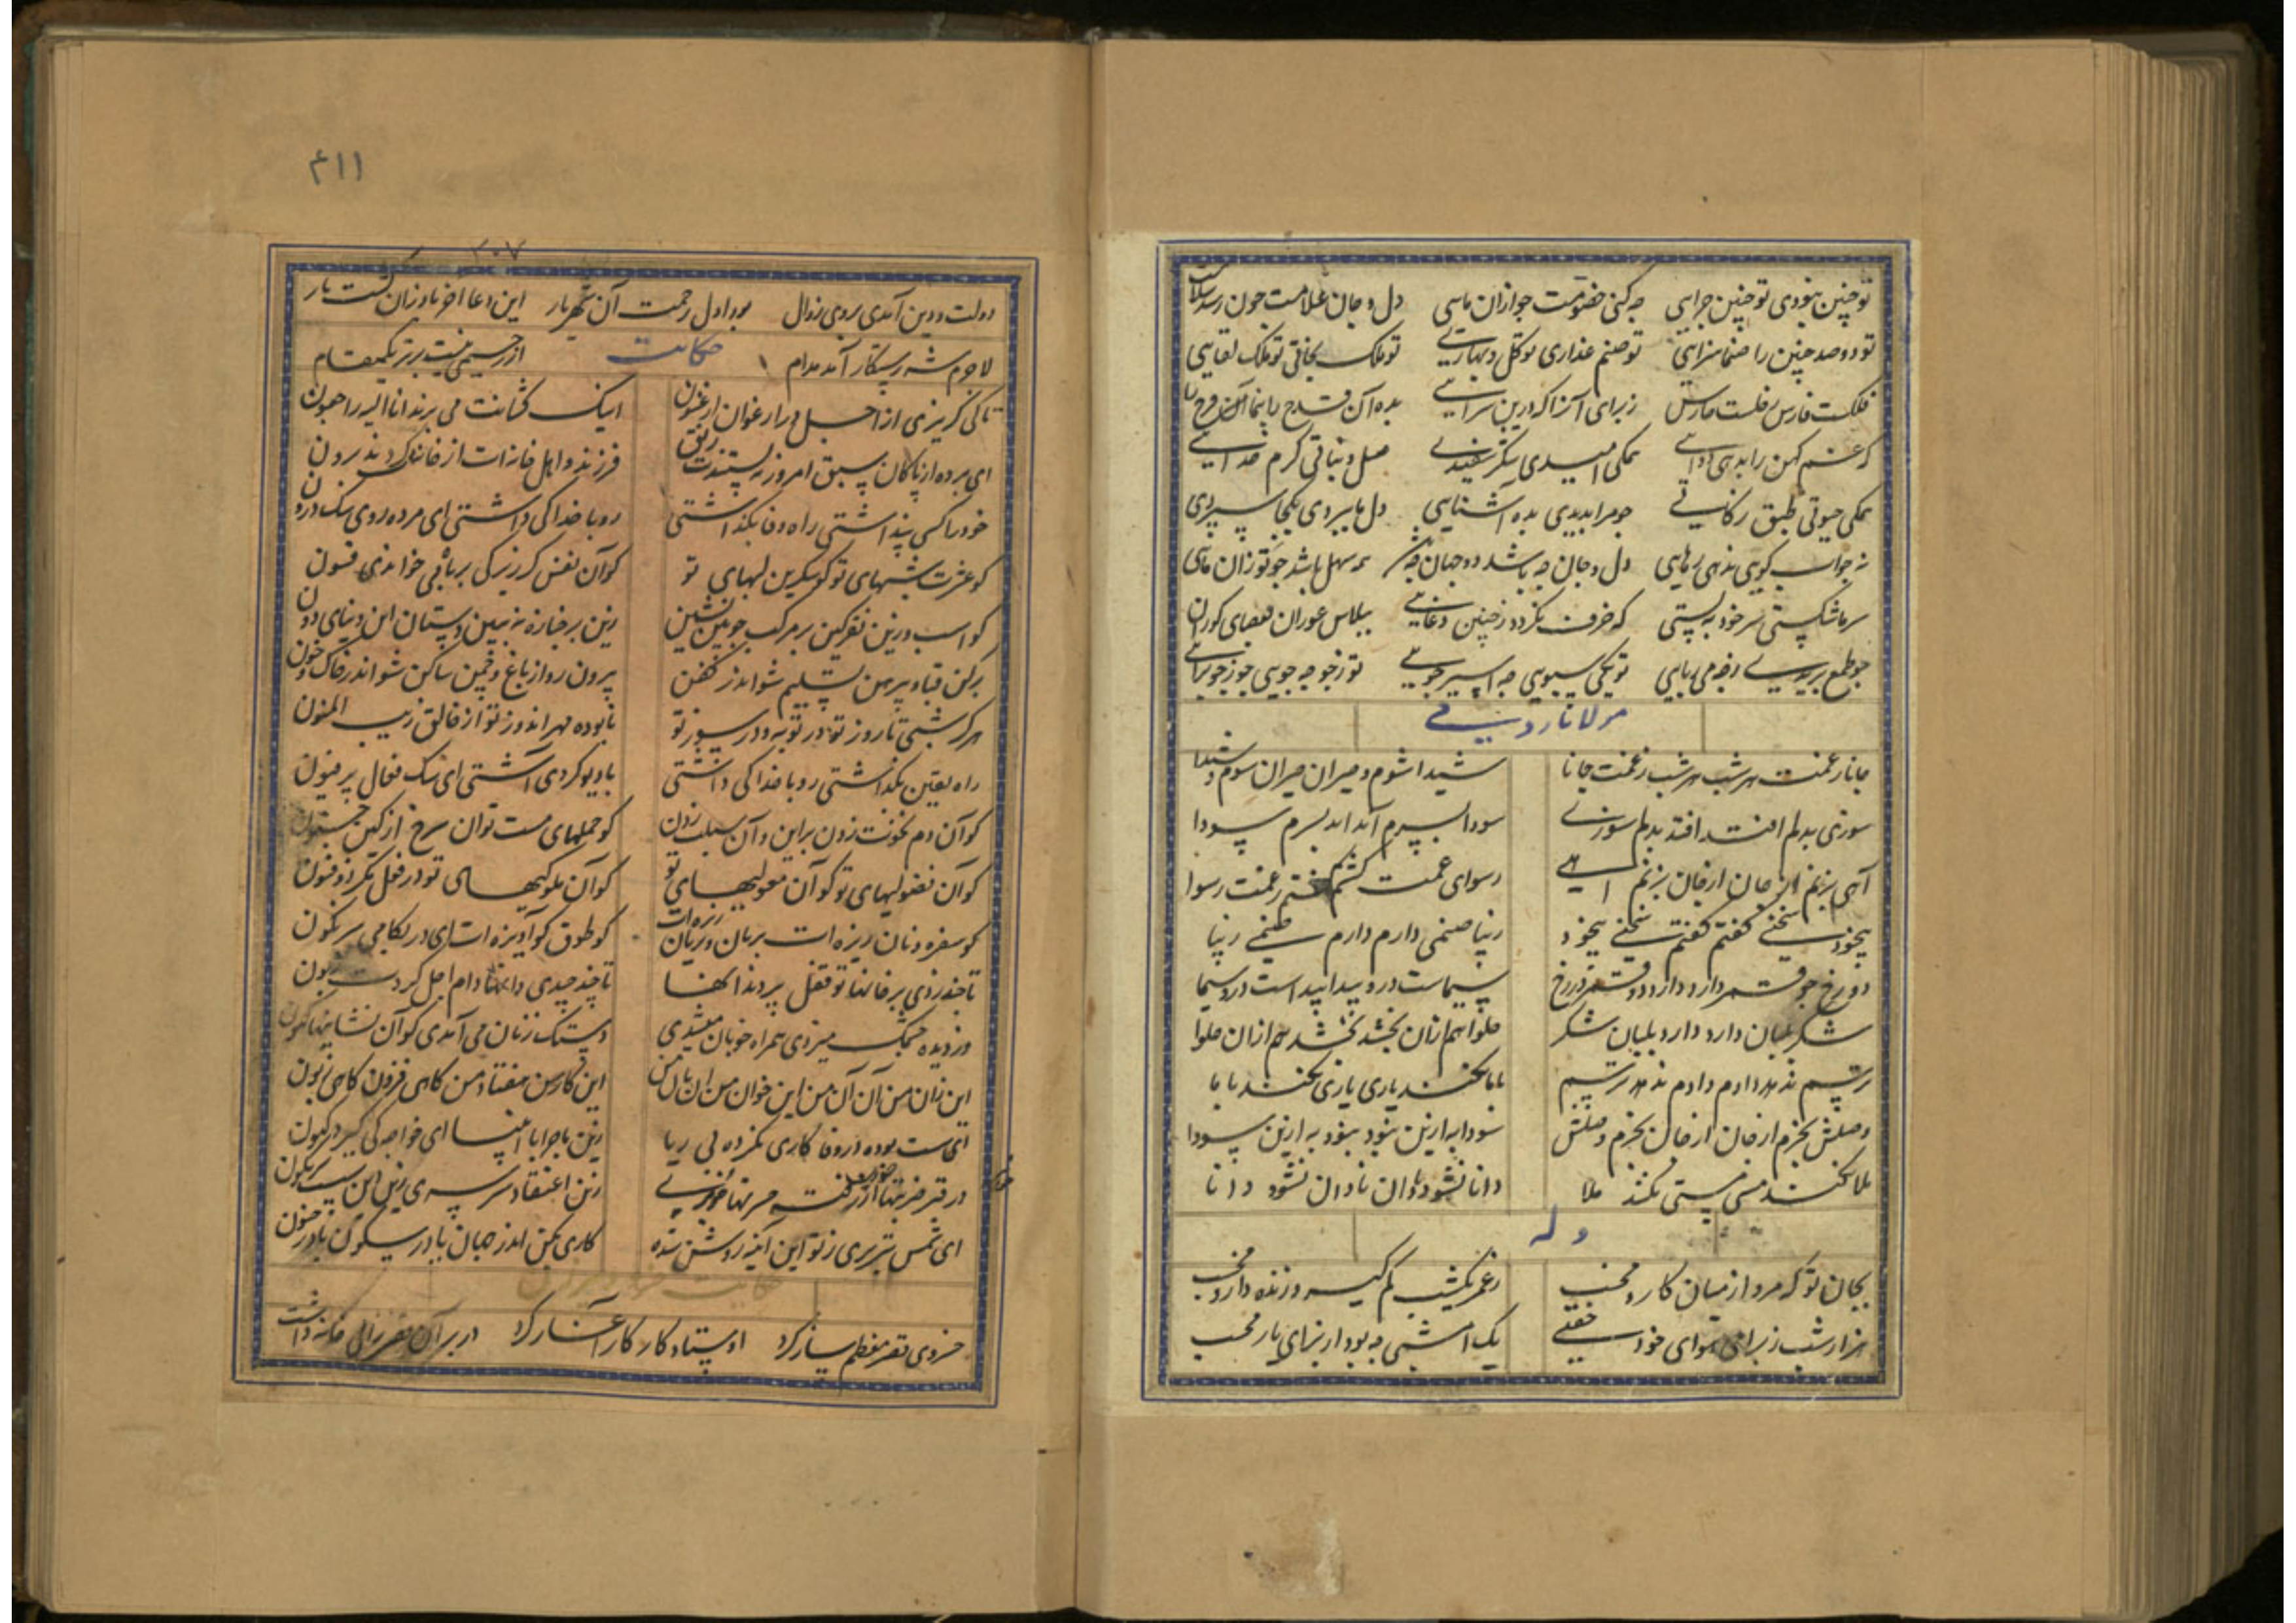 تو چنین نبودی تو چنین چرایی چه کنی خصومت چو از آن مایی دل و جان غلامت چون رسد سلامت
تو دو صد چنین را صنما سزایی تو صنم عذاری تو گل و بهاری تو ملک بخاقی تو ملک لقایی
فلکت فارس زبرای آنرا که درین سرایی بده آن قدح را
که غم کهن را بدهی دوایی نمکی امیدی شکر سفیدی خدایی
نمکی حیوتی طبق زکاتی چو مرا بدیدی بده آشنایی دل ما ببردی بکجا سپردی
نه جواب گویی نه دهی رهایی دل و جان چه باشد دو جهان چه همه سهل باشد چو تو زان مایی
سر ما شکستی سر خود ببستی که خرف نگردد ز چنین دغایی بپلاس عوران بعصای کوران
چو طمع بریدی تو یکی سبویی چه اسیر جویی تو ز جو چه جویی
مولانا رومی
جانا ز غمت هر شب هر شب ز غمت جانا شیدا شوم و حیران حیران شوم و شیدا
سوزی بدلم افتد افتد بدلم سوزی سودا بسرم آید آید بسرم سودا
آهی بزنم از جان از جان بزنم آهی رسوای غمت گشتم گشتم ز غمت رسوا
بیخود سخنی گفتم گفتم سخنی بیخود زیبا صنمی دارم دارم صنمی زیبا
دو رخ چو قمر دارد دارد چو قمر دو رخ سیماست درو پیدا پیداست درو سیما
شکر بلبان دارد دارد بلبان شکر حلوا هم ازان بخشد بخشد هم ازان حلوا
ترسم ندهد دادم دادم ندهد ترسم با ما نکند یاری یاری نکند با ما
وصلش بخرم از جان از جان بخرم وصلش سودا به ازین نبود نبود به ازین سودا
ملا نکند مستی مستی نکند ملا دانا نشود نادان نادان نشود دانا
وله
بجان تو که مرو از میان کار مخسب ز عمر یکشب کم گیر و زنده دار مخسب
هزار شب ز برای هوای خود خفتی یک امشبی چه بود از برای یار مخسب
۴۱۱
۳۰۷
دولت و دین آمدی بروی زوال بود اول رحمت آن شهریار این دعا آخر باو زان گشت یار
لاجرم شه رستگار آمد مدام حکایت از رحیمی نیست برتر یک مقام
تا کی گریزی از اجل در ارغوان ارغنون اینک کشانت می برند انا الیه راجعون
ای برده از پاکان سبق امروز فرزند و اهل خانه ات از خانه کردند برون
خود را کسی پنداشتی راه وفا بگذاشتی رو با خدا کی داشتی ای مرده روی سگ درون
کو عشرت شبهای تو کو شکرین لبهای تو کو آن نفس کز زیرکی بر ماه می خواندی فسون
کو اسب و زین نقرگین بر مرکب چوبین نشین زین بر جنازه نه ببین دستان این دنیای دون
برکن قبا و پیرهن تسلیم شو اندر کفن بیرون رو از باغ و چمن ساکن شو اندر خاک و خون
هرگز شبی تا روز تو در توبه و در سوز تو نابوده مهراندوز تو از خالق ریب المنون
راه یقین بگذاشتی رو با خدا کی داشتی با دیو کردی آشتی ای سگ فعال پر فنون
کو آن دم نخوت زدن بر این و آن سبلت زدن کو حملهای مست تو
کو آن فضولیهای تو کو آن ملولیهای تو کو آن نکوییهای تو در فعل مکر ذوفنون
کو سفره و نان ریزه ات بریان و بریان ریزه ات کو طوق کو آویزه ات ای در لکامی سرنگون
تا چند دزدی بر خانها تو قفل تا چند چیدی دانها دام اجل کردت زبون
دزدیده چشمک میزدی همراه خوبان میشدی دستک زنان می آمدی کو آن نشانیها کنون
این زان من آن آن من این خوان من آن نان من این کار من هفتاد من گاهی فزون گاهی زبون
ای شمس تبریزی ز تو این آینه روشن شده کاری بکن اندر جهان
خسروی قصر معظم ساز کرد اوستاد کار کار آغاز کرد در بر آن قصر زالی خانه داشت